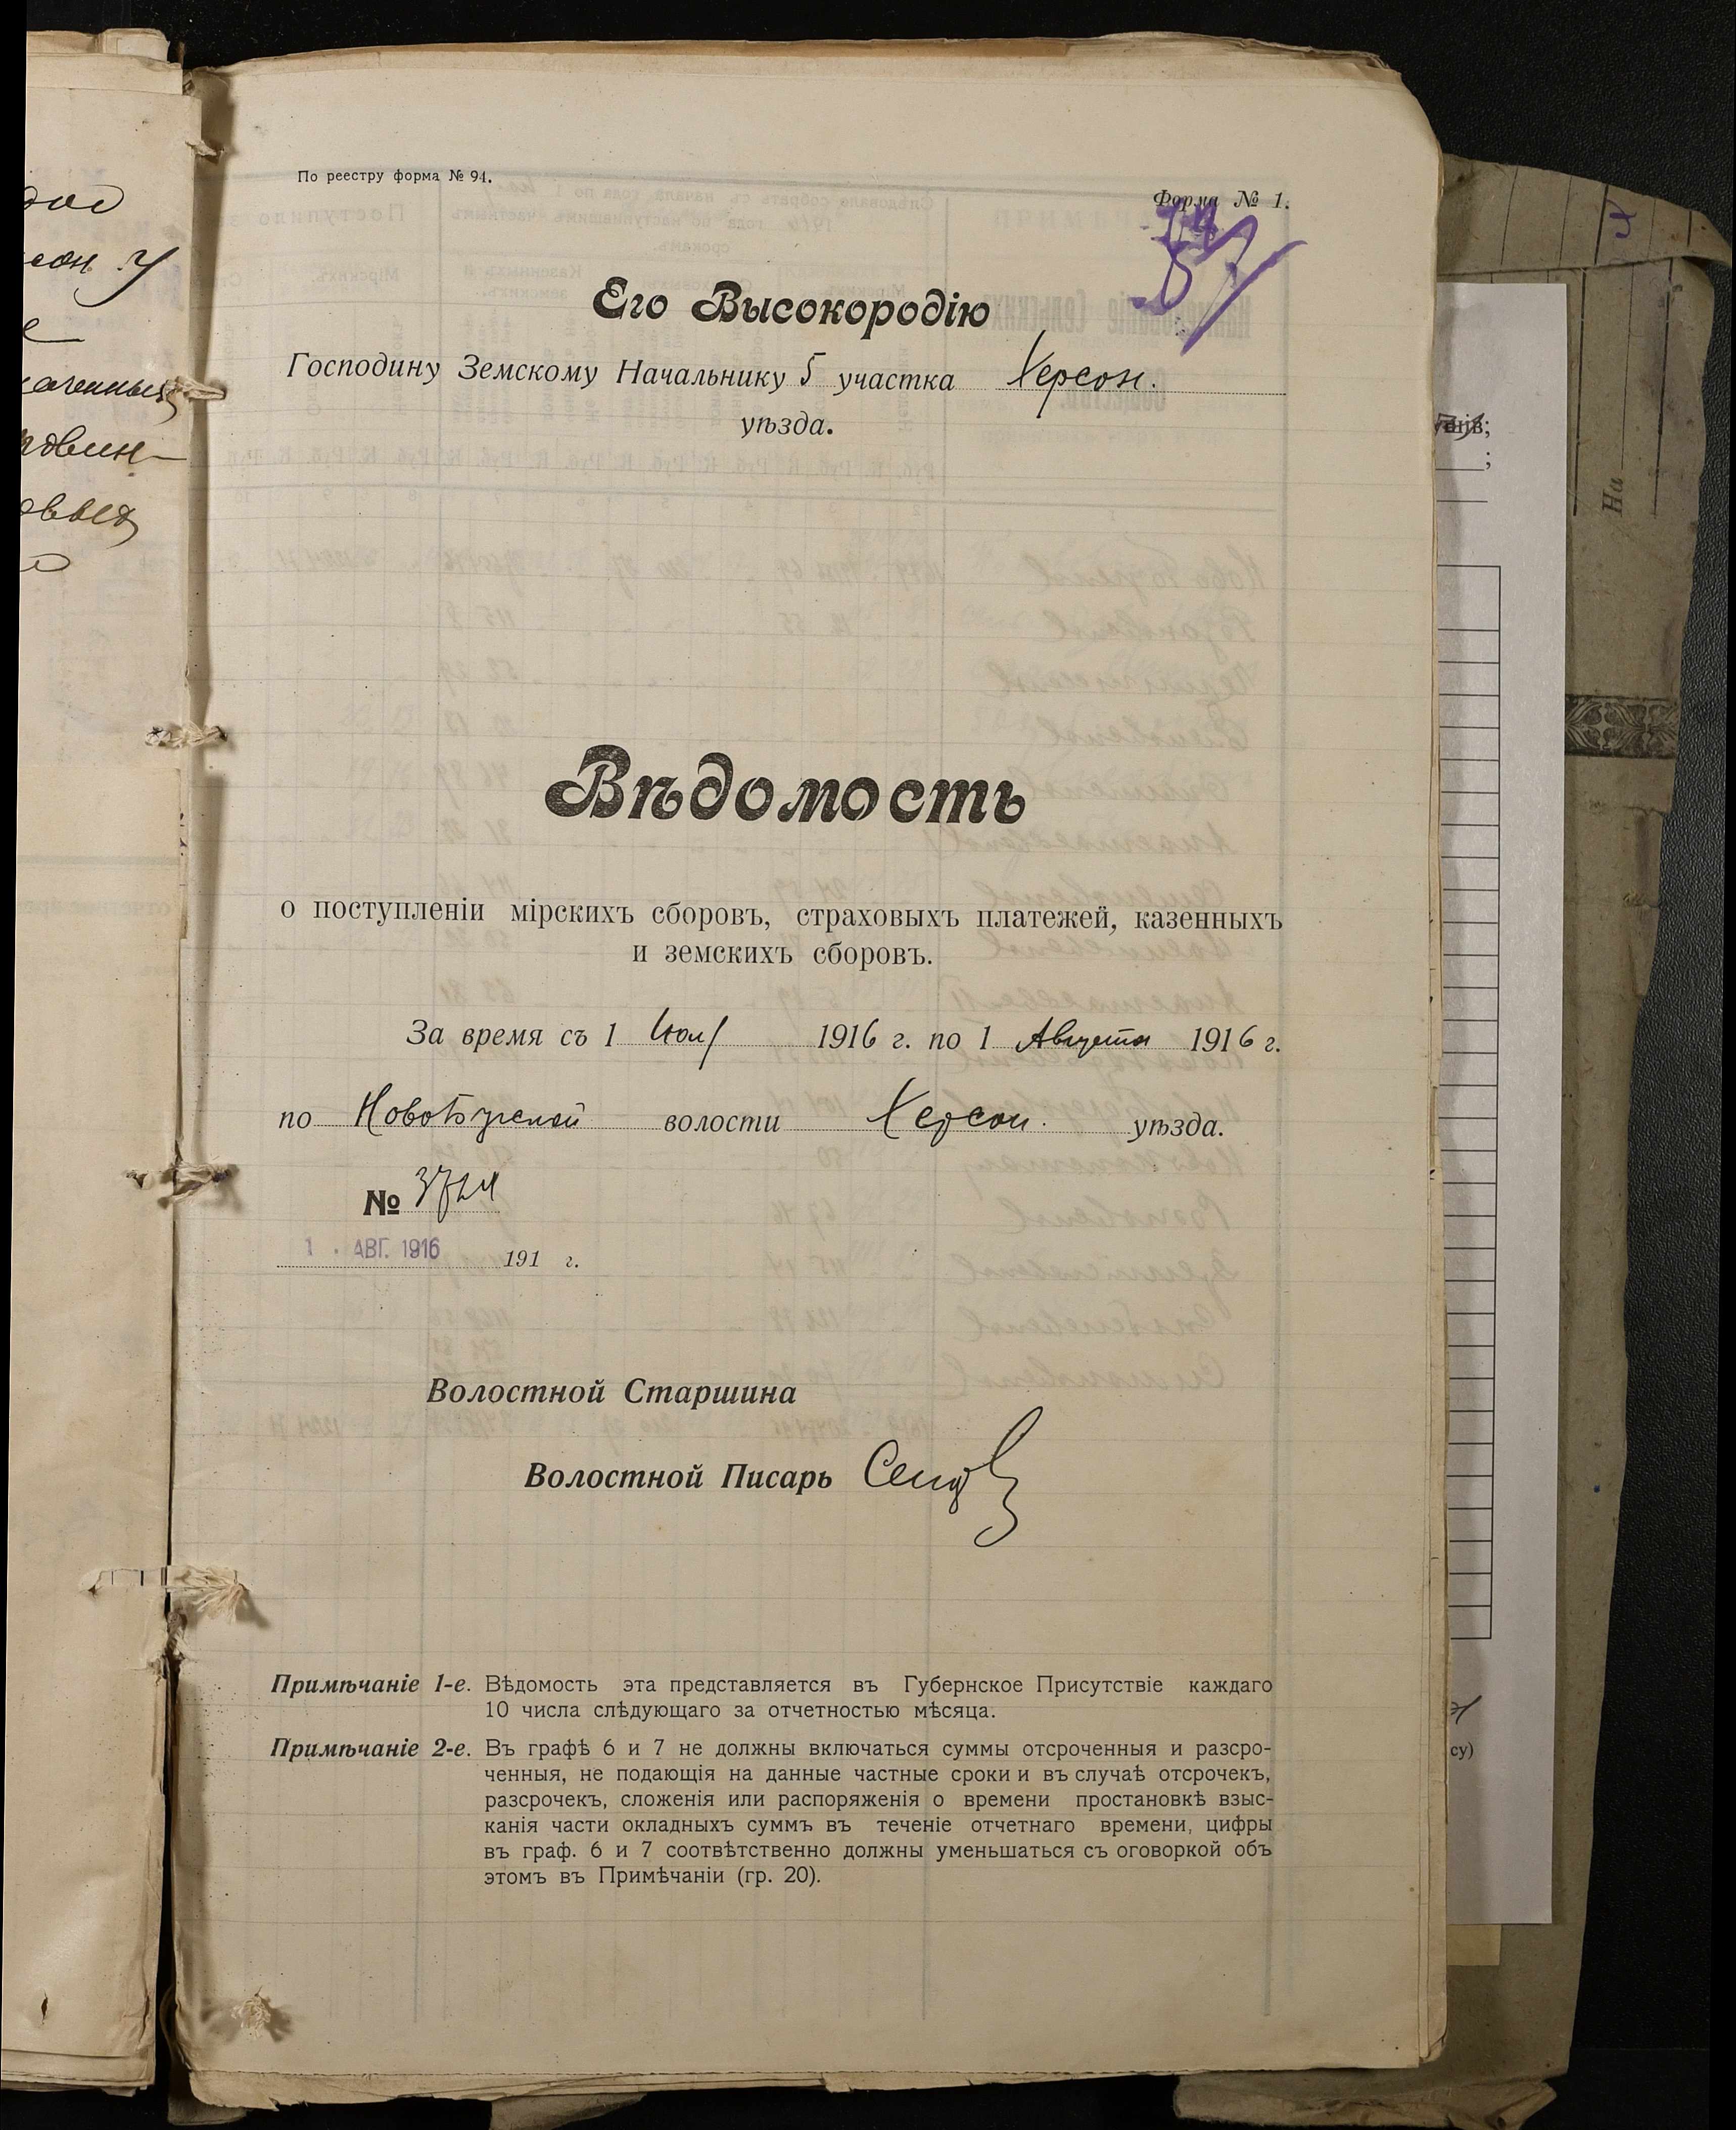 По реестру форма № 94.
Форма № 1.
Его Высокородію
Господину Земскому Начальнику 5 участка Херсон.
уѣзда.
Вѣдомость
о поступленіи мірскихъ сборовъ, страховыхъ платежей, казенныхъ
и земскихъ сборовъ.
За время съ 1 Июл 1916 г. по 1 Августа 1916 г.
по НовоБугской волости Херсон. уѣзда.
№
1 . АВГ. 1916 191 г.
Волостной Старшина
Волостной Писарь
Примѣчаніе 1-е. Вѣдомость эта представляется въ Губернское Присутствіе каждаго
10 числа слѣдующаго за отчетностью мѣсяца.
Примѣчаніе 2-е. Въ графѣ 6 и 7 не должны включаться суммы отсроченныя и разсро-
ченныя, не подающія на данные частные сроки и въ случаѣ отсрочекъ,
разсрочекъ, сложенія или распоряженія о времени простановкѣ взыс-
канія части окладныхъ суммъ въ теченіе отчетнаго времени, цифры
въ граф. 6 и 7 соотвѣтственно должны уменьшаться съ оговоркой объ
этомъ въ Примѣчаніи (гр. 20).